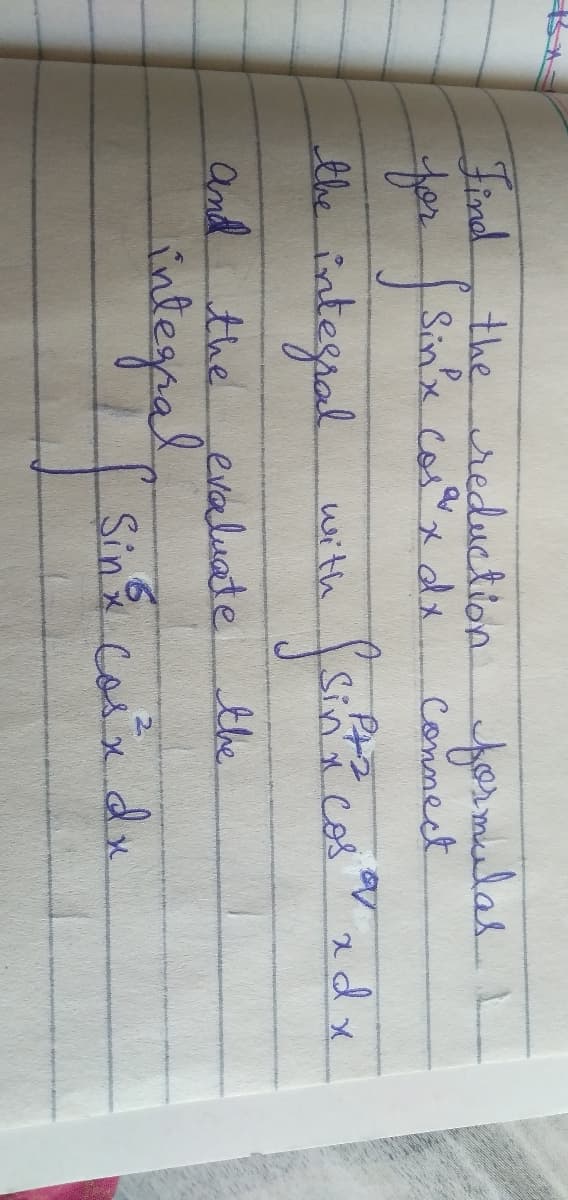 Find the reduction formulas
for ∫ Sin^p x Cos^q x dx connect
the integral with ∫ Sin^{p+2} x cos^q x dx
and the evaluate the
integral
∫ Sin^6 x Cos^2 x dx